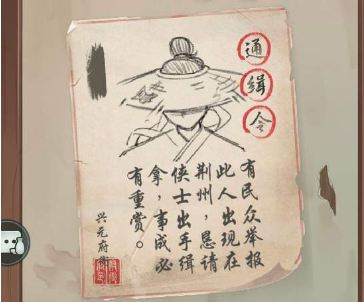 通缉令
有民众举报
此人出现在
荆州，恳请
侠士出手缉
拿，事成必
有重赏。
兴元府衙